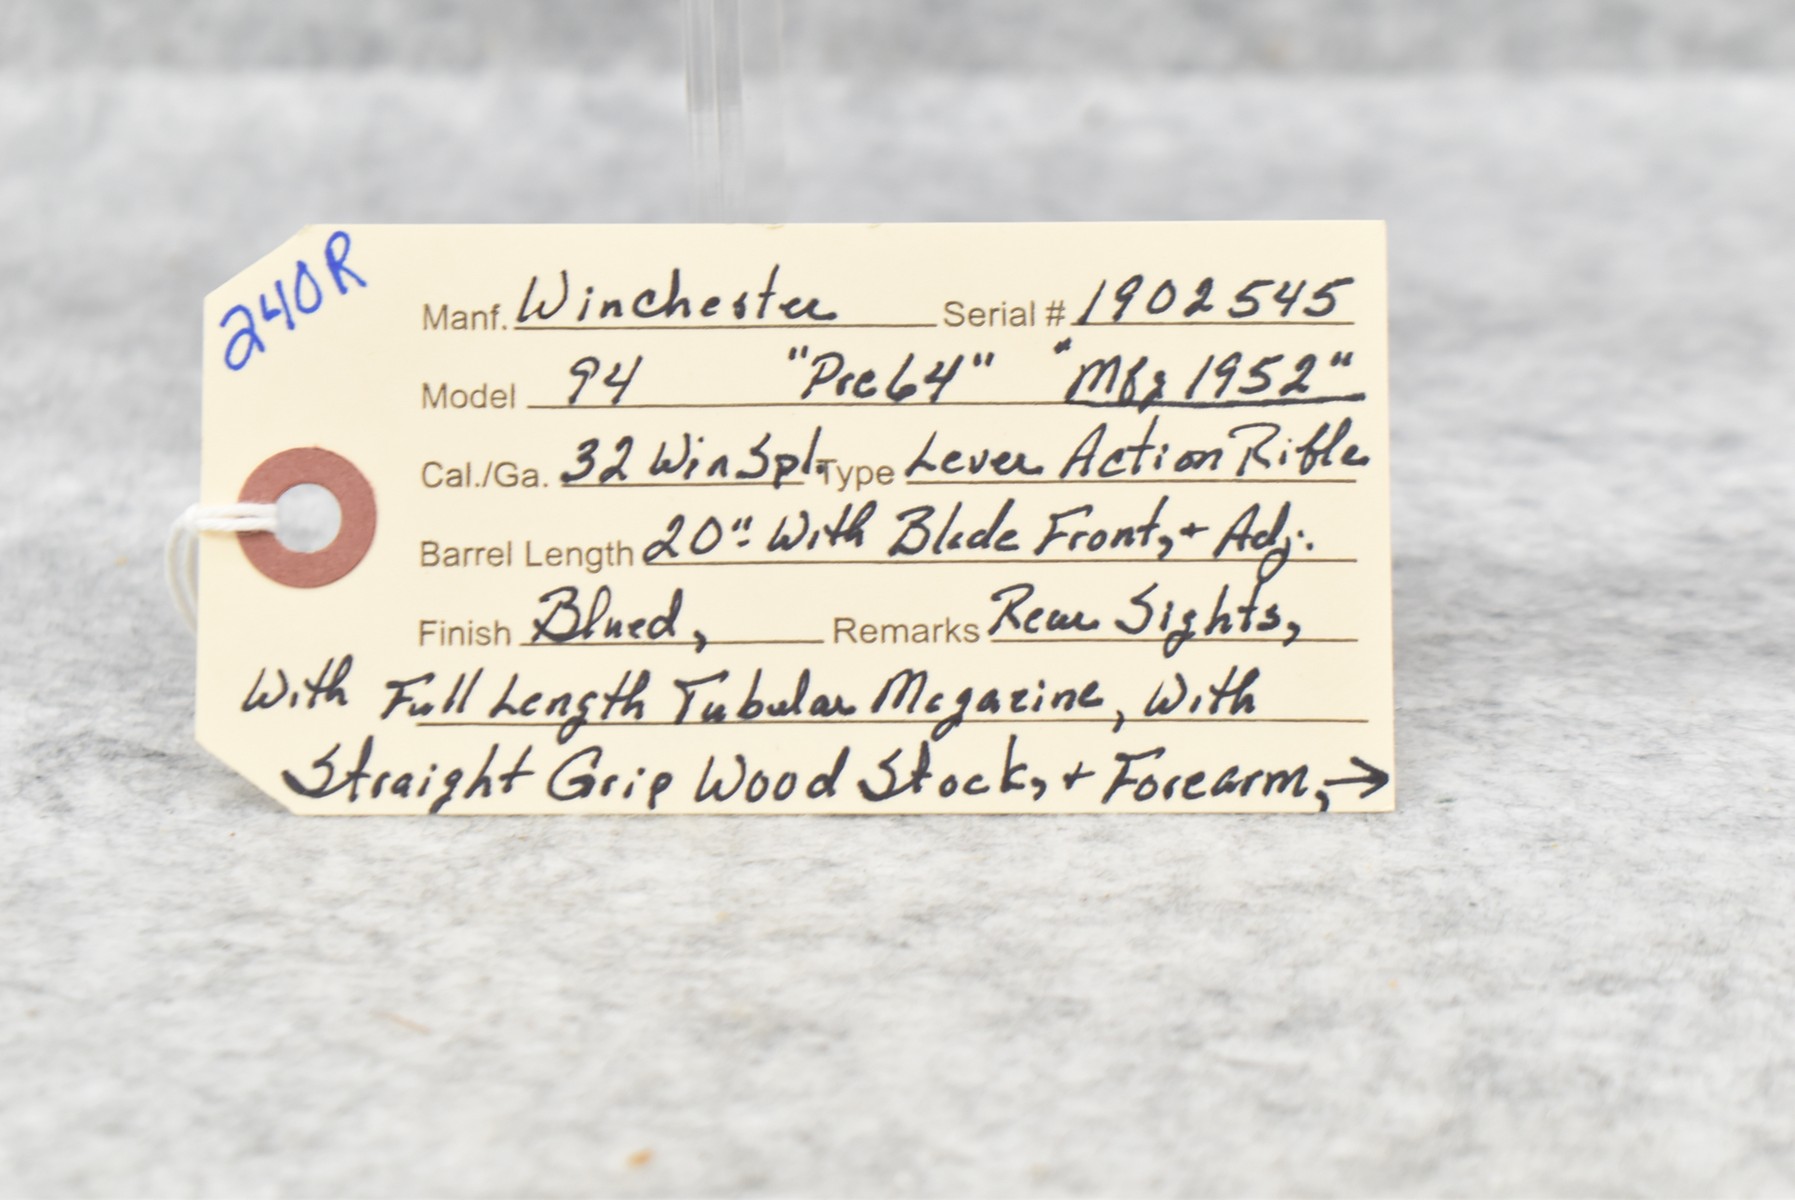 240R
Manf. Winchester Serial # 1902545
Model 94 "Pre64" "Mfg 1952"
Cal./Ga. 32 Win Spl. Type Lever Action Rifle
Barrel Length 20" With Blade Front, + Adj.
Finish Blued, Remarks Rear Sights,
With Full Length Tubular Magazine, With
Straight Grip Wood Stock, + Forearm, →